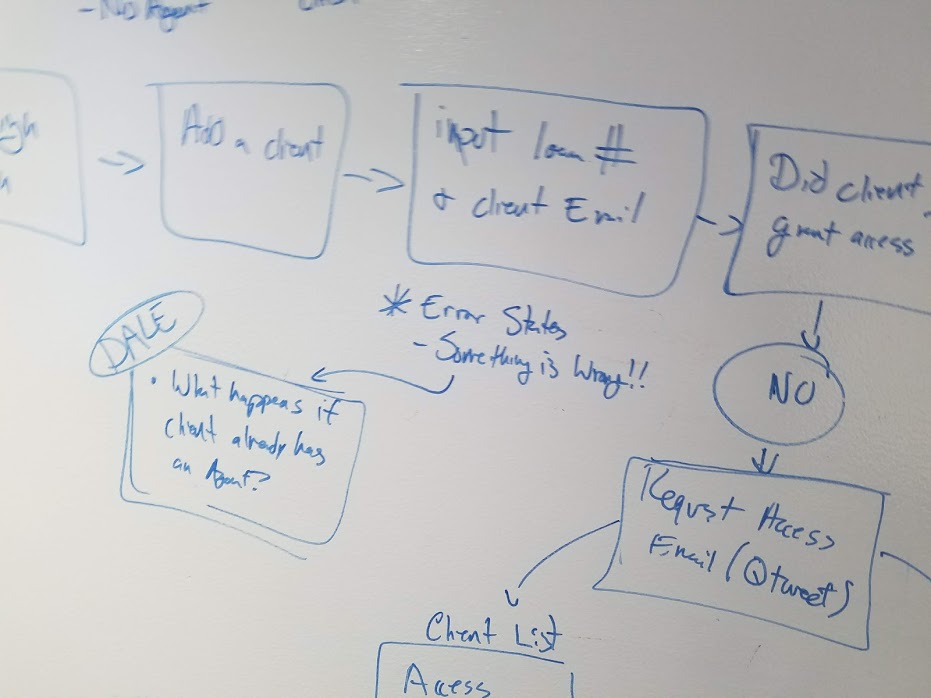 - No Agent
Add a client
input loan #
+ client Email
Did client
grant access
* Error States
- Something is Wrong!!
DALE
• What happens if
client already has
an Agent?
NO
Requst Access
Email (Qtweet)
Client List
Access